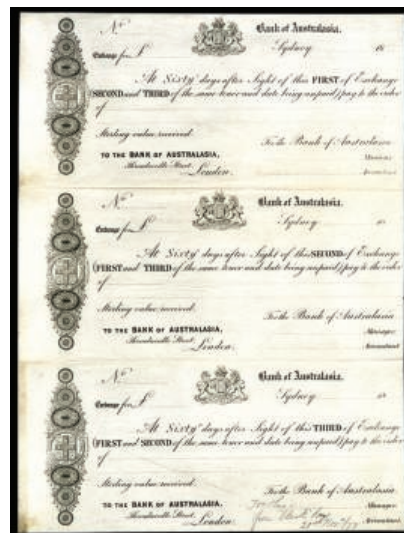 No
Bank of Australasia.
Sydney 18
Exchange for £
At Sixty days after Sight of this FIRST of Exchange
(SECOND and THIRD of the same tenor and date being unpaid) pay to the order
of
Sterling value received.
For the Bank of Australasia
TO THE BANK OF AUSTRALASIA,
Manager.
Threadneedle Street,
London.
Accountant.
No
Bank of Australasia.
Sydney 18
Exchange for £
At Sixty days after Sight of this SECOND of Exchange
(FIRST and THIRD of the same tenor and date being unpaid) pay to the order
of
Sterling value received.
For the Bank of Australasia
TO THE BANK OF AUSTRALASIA,
Manager.
Threadneedle Street,
London.
Accountant.
No
Bank of Australasia.
Sydney 18
Exchange for £
At Sixty days after Sight of this THIRD of Exchange
(FIRST and SECOND of the same tenor and date being unpaid) pay to the order
of
Sterling value received.
For the Bank of Australasia
TO THE BANK OF AUSTRALASIA,
Manager.
Threadneedle Street,
London.
Accountant.